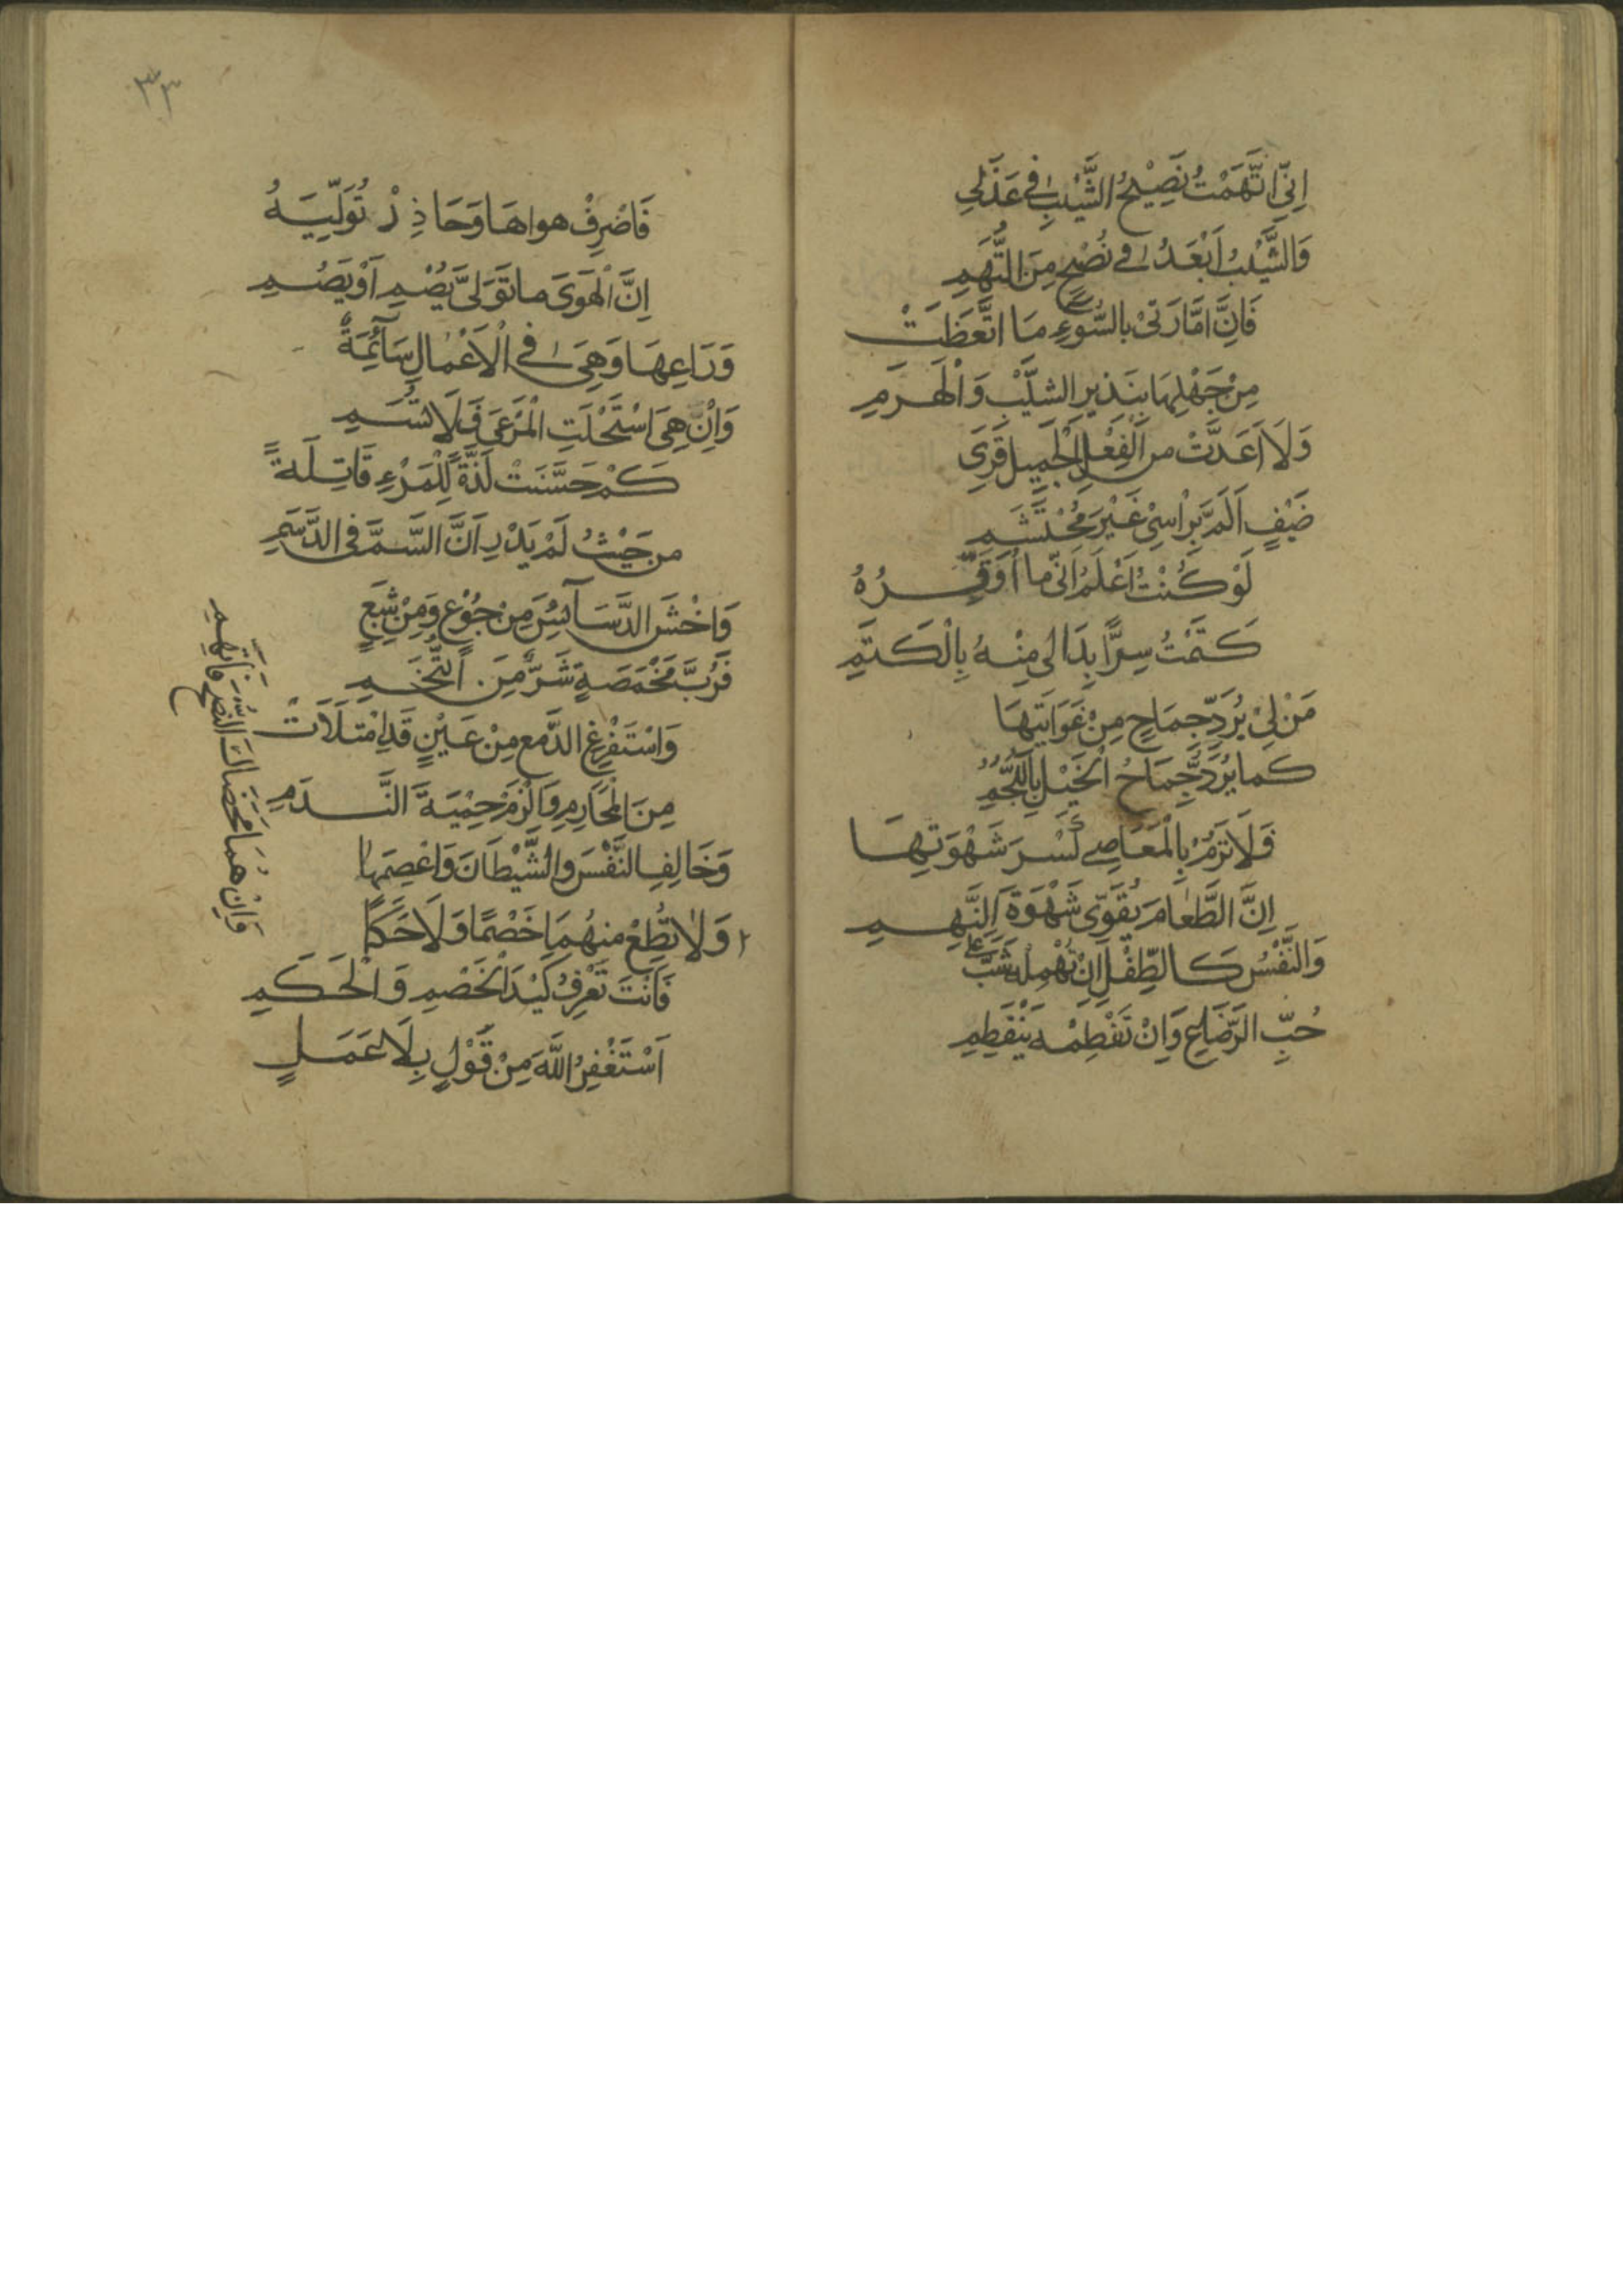 اِنِّي اتَّهَمْتُ نَصِيْحَ الشَّيْبِ فِي عَذَلِي
وَالشَّيْبُ اَبْعَدُ فِي نُصْحٍ مِنَ التُّهَمِ
فَاِنَّ اَمَّارَتِيْ بِالسُّوْءِ مَا اتَّعَظَتْ
مِنْ جَهْلِهَا بِنَذِيرِ الشَّيْبِ وَالْهَرَمِ
وَلَا اَعَدَّتْ مِنَ الْفِعْلِ الْجَمِيلِ قِرَى
ضَيْفٍ اَلَمَّ بِرَاسِيْ غَيْرَ مُحْتَشَمِ
لَوْ كُنْتُ اَعْلَمُ اَنِّي مَا اُوَقِّرُهُ
كَتَمْتُ سِرًّا بَدَا لِي مِنْهُ بِالْكَتَمِ
مَنْ لِيْ بِرَدِّ جِمَاحٍ مِنْ غَوَايَتِهَا
كَمَا يُرَدُّ جِمَاحُ الْخَيْلِ بِاللُّجُمِ
فَلَا تَرُمْ بِالْمَعَاصِي كَسْرَ شَهْوَتِهَا
اِنَّ الطَّعَامَ يُقَوِّي شَهْوَةَ النَّهِمِ
وَالنَّفْسُ كَالطِّفْلِ اِنْ تُهْمِلْهُ شَبَّ عَلَى
حُبِّ الرَّضَاعِ وَاِنْ تَفْطِمْهُ يَنْفَطِمِ
٣٣
فَاصْرِفْ هَوَاهَا وَحَاذِرْ تُوَلِّيَهُ
اِنَّ الْهَوَى مَا تَوَلَّى يُصْمِ اَوْ يَصُمِ
وَرَاعِهَا وَهِيَ فِي الْاَعْمَالِ سَائِمَةٌ
وَاِنْ هِيَ اسْتَحْلَتِ الْمَرْعَى فَلَا تُسِمِ
كَمْ حَسَّنَتْ لَذَّةً لِلْمَرْءِ قَاتِلَةً
مِنْ حَيْثُ لَمْ يَدْرِ اَنَّ السَّمَّ فِي الدَّسَمِ
وَاخْشَ الدَّسَائِسَ مِنْ جُوْعٍ وَمِنْ شِبَعٍ
فَرُبَّ مَخْمَصَةٍ شَرٌّ مِنَ التُّخَمِ
وَاسْتَفْرِغِ الدَّمْعَ مِنْ عَيْنٍ قَدِ امْتَلَاَتْ
مِنَ الْمَحَارِمِ وَالْزَمْ حِمْيَةَ النَّدَمِ
وَخَالِفِ النَّفْسَ وَالشَّيْطَانَ وَاعْصِهِمَا
وَلَا تُطِعْ مِنْهُمَا خَصْمًا وَلَا حَكَمًا
فَاَنْتَ تَعْرِفُ كَيْدَ الْخَصْمِ وَالْحَكَمِ
اَسْتَغْفِرُ اللَّهَ مِنْ قَوْلٍ بِلَا عَمَلٍ
وَاِنْ هُمَا مَحَضَاكَ النُّصْحَ فَاتَّهِمِ